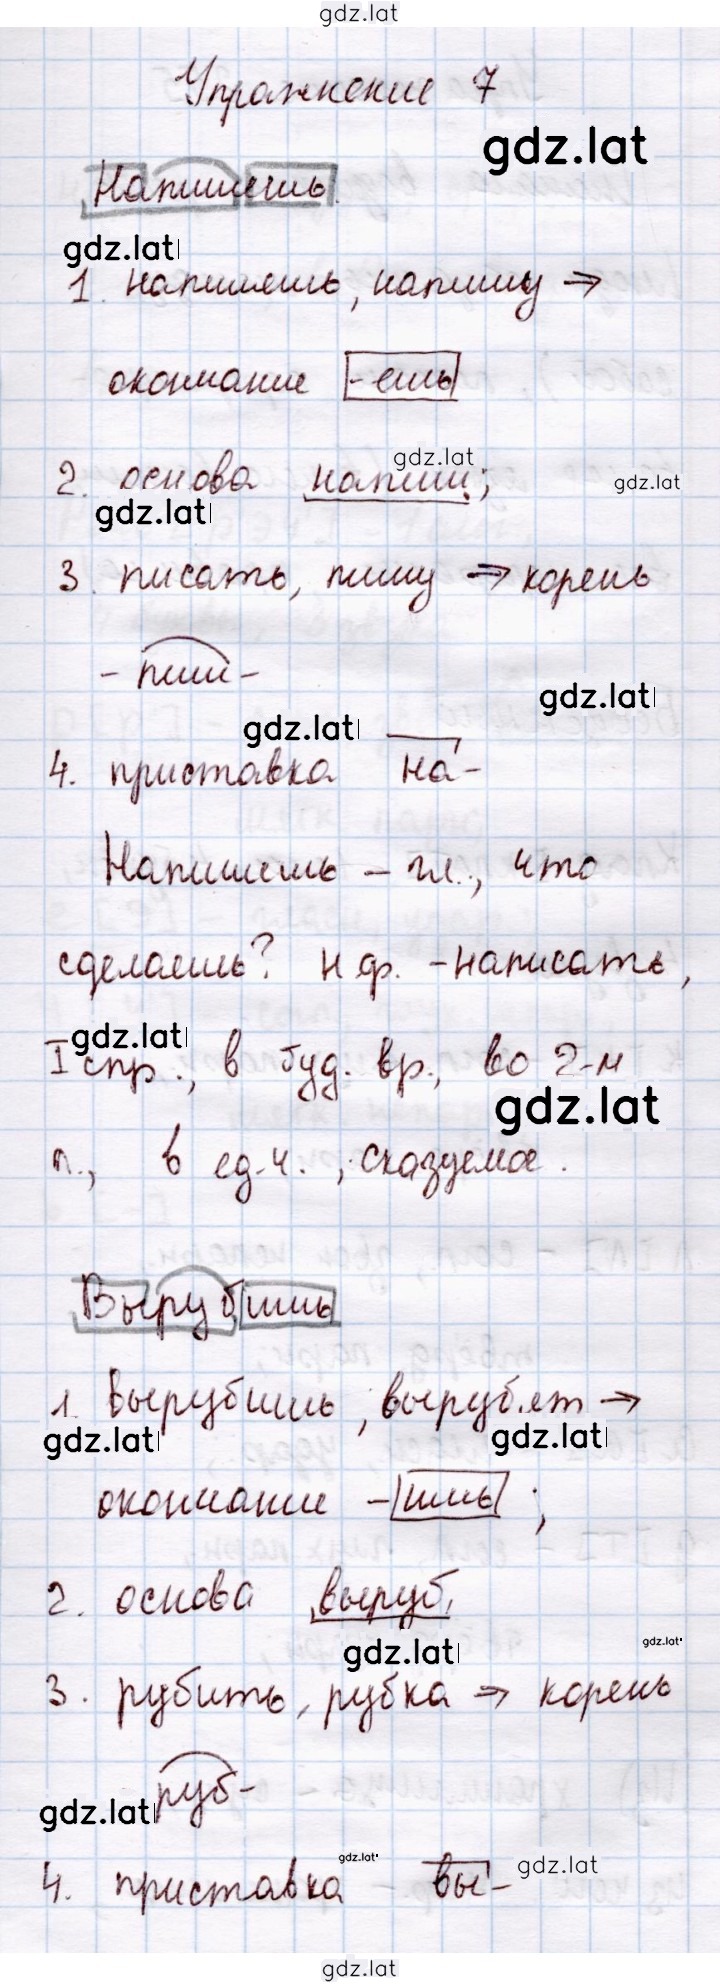 gdz.lat
Упражнение 7
gdz.lat
Напишешь.
gdz.lat
1. напишешь, напишу →
окончание -ешь
gdz.lat
2. основа напиш;
gdz.lat
gdz.lat
3. писать, пишу → корень
-пиш-
gdz.lat
gdz.lat
4. приставка на-
Напишешь – гл., что
сделаешь? н.ф. -написать,
gdz.lat
I спр., в буд. вр., во 2-м
gdz.lat
л., в ед.ч., сказуемое.
Вырубишь
1. Вырубишь, вырубят →
gdz.lat
gdz.lat
окончание -ишь;
2. основа выруб,
gdz.lat
gdz.lat
3. рубить, рубка → корень
руб-
gdz.lat
gdz.lat
gdz.lat
4. приставка вы-
gdz.lat